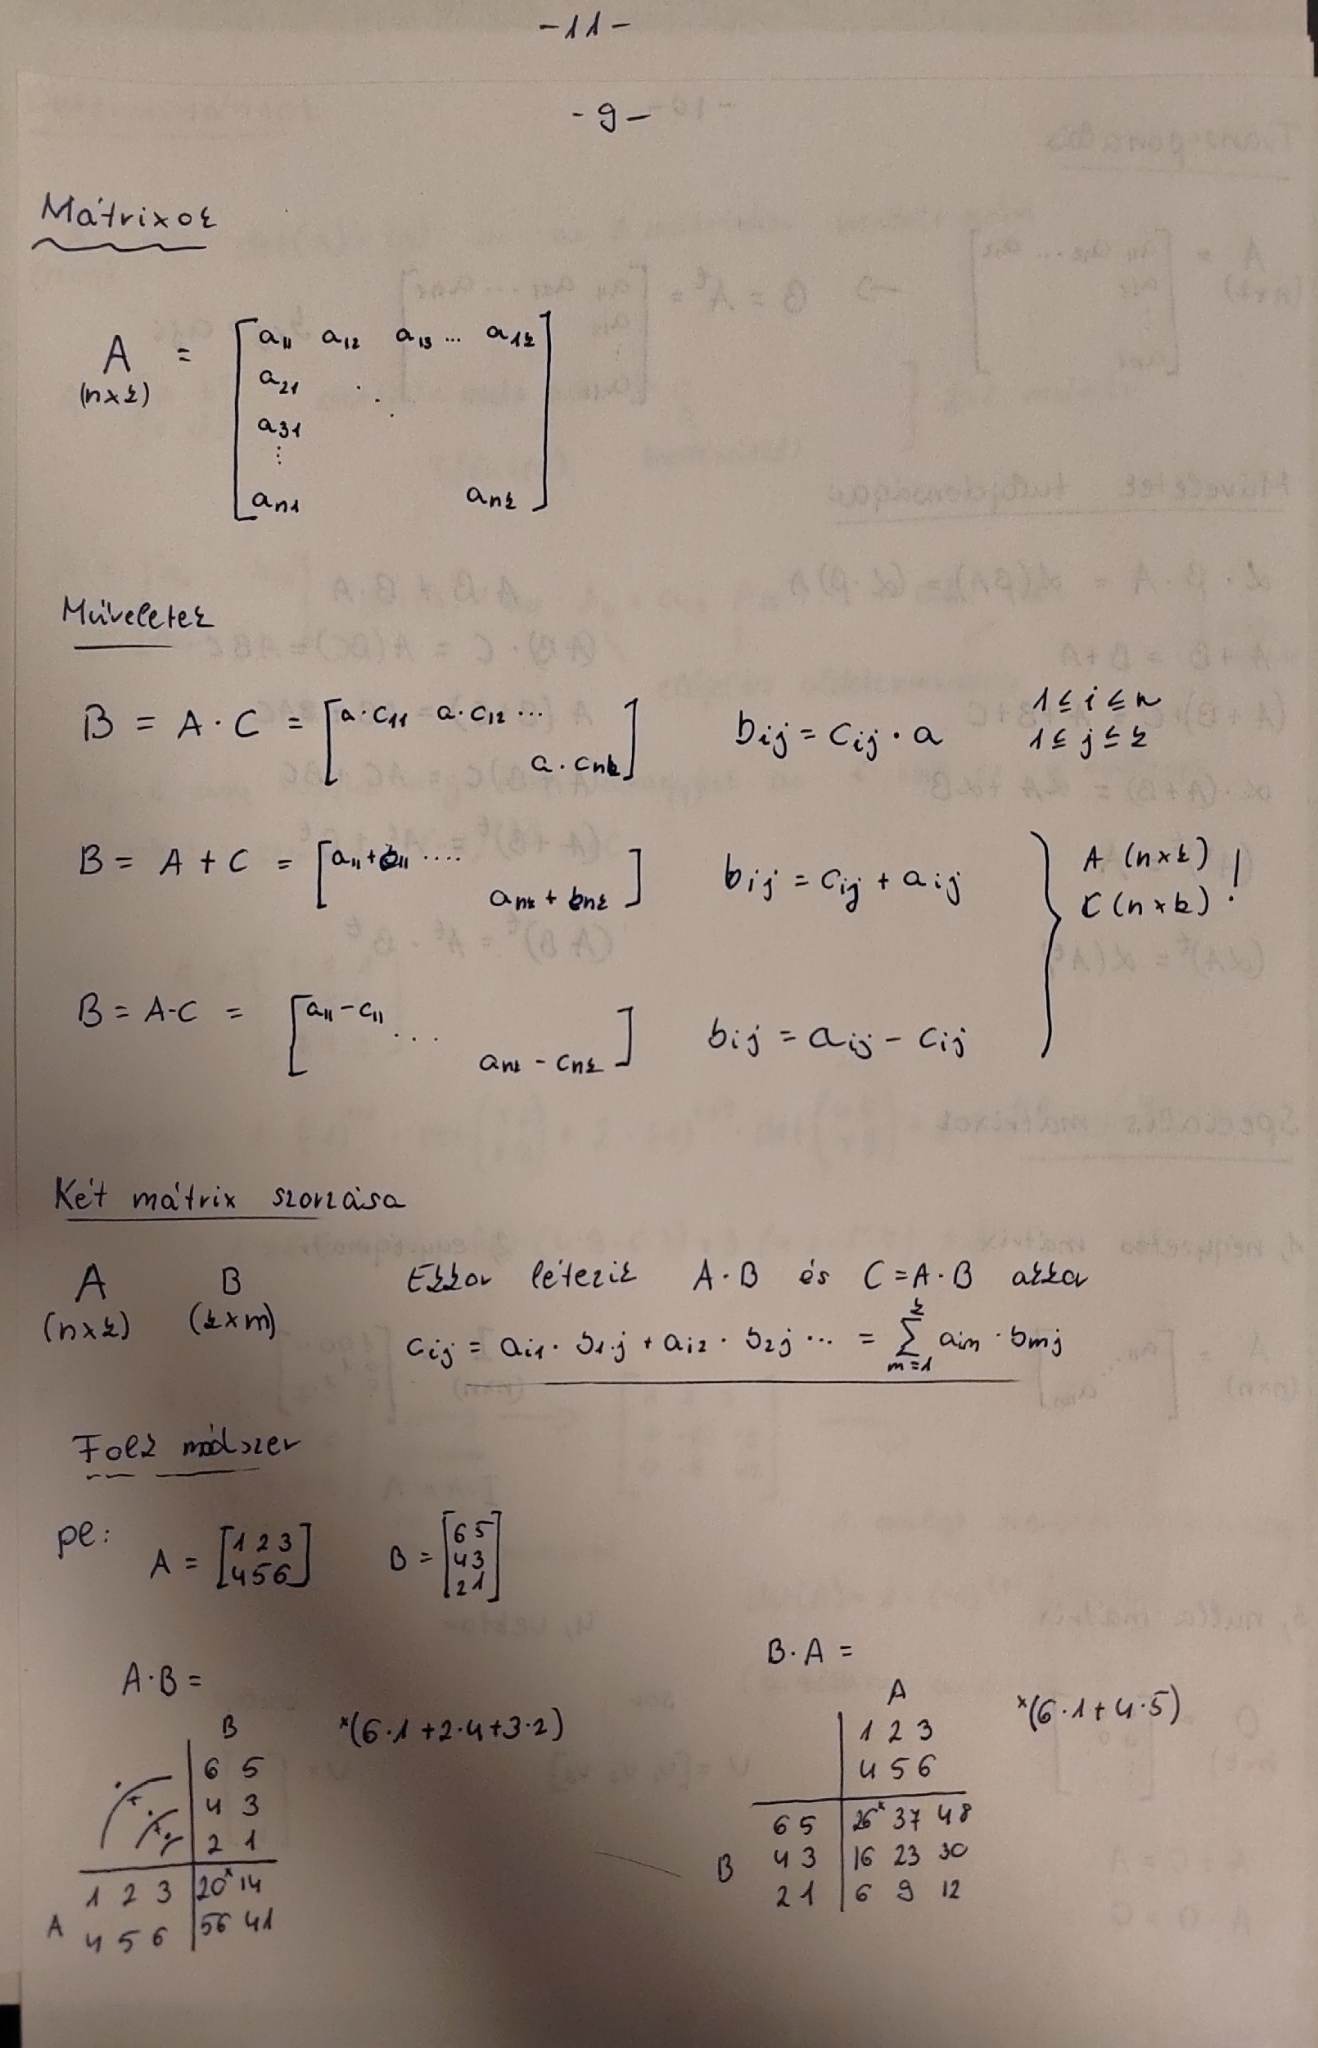 -11-
-9-
Mátrixok
A (n×k) = [a11 a12 a13 ... a1k
a21 ⋱
a31
⋮
an1 ank]
Műveletek
B = A · C = [a·c11 a·c12 ... a·cnk] bij = cij · a 1≤i≤n 1≤j≤k
B = A + C = [a11+b11 .... ank+bnk] bij = cij + aij A (n×k) C (n×k) !
B = A-C = [a11-c11 ... ank-cnk] bij = aij - cij
Két mátrix szorzása
A (n×k) B (k×m) Ekkor létezik A·B és C=A·B akkor
cij = ai1 · b1j + ai2 · b2j ... = ∑ m=1 k aim · bmj
Falk módszer
pl: A = [1 2 3
4 5 6] B = [6 5
4 3
2 1]
A·B =
B *(6·1+2·4+3·2)
6 5
4 3
2 1
1 2 3 20* 14
A 4 5 6 56 41
B·A =
A *(6·1+4·5)
1 2 3
4 5 6
6 5 26* 37 48
B 4 3 16 23 30
2 1 6 9 12